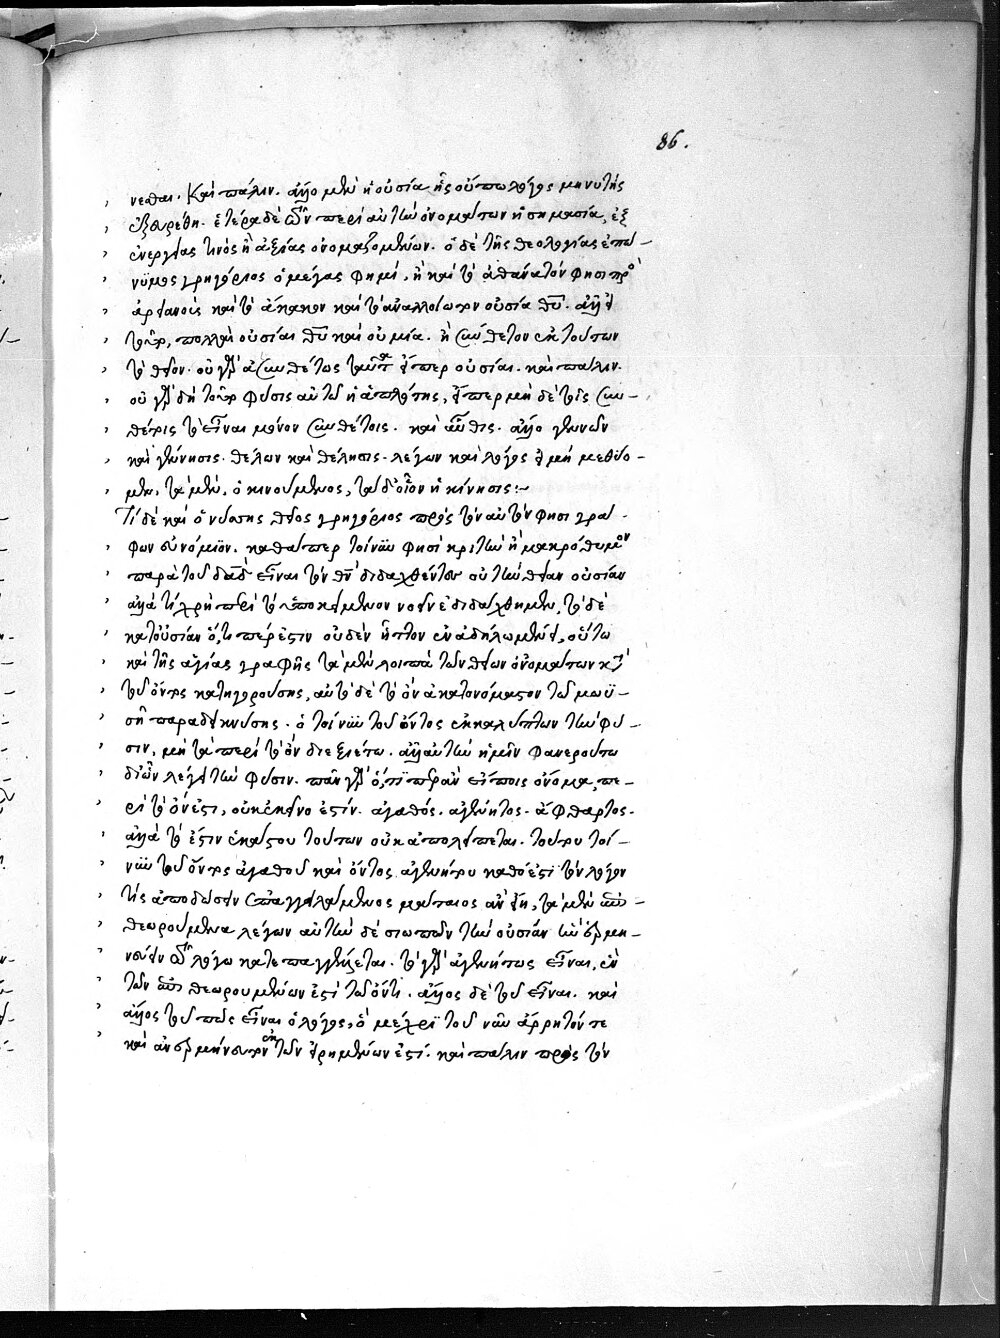 86.
νεσθαι. Καὶ πάλιν. ἄλλο μὲν ἡ οὐσία ἧς οὔπω λόγος μηνυτὴς
ἐξευρέθη. ἑτέρα δὲ τῶν περὶ αὐτὴν ὀνομάτων ἡ σημασία, ἐξ
ἐνεργείας τινὸς ἢ ἀξίας ὀνομαζομένων. ὁ δὲ τῆς θεολογίας ἐπώ-
νυμος γρηγόριος ὁ μέγας φημί, ἢ καὶ τὸ ἀθάνατόν φησι πρὸς
ἀρειανοὺς καὶ τὸ ἄκακον καὶ τὸ ἀναλλοίωτον οὐσία θῦ. ἀλλ' εἰ
τοῦτο, πολλαὶ οὐσίαι θῦ καὶ οὐ μία. ἢ σύνθετον ἐκ τούτων
τὸ θεῖον. οὐ γὰρ ἀσυνθέτως ταῦτα εἴπερ οὐσίαι. καὶ πάλιν.
οὐ γὰρ δὴ τοῦτο φύσις αὐτῷ ἡ ἁπλότης, εἴπερ μὴ δὲ τοῖς συν-
θέτοις τὸ εἶναι μόνον συνθέτοις. καὶ αὖθις. ἄλλο γεννῶν
καὶ γέννησις. θέλων καὶ θέλησις. λέγων καὶ λόγος εἰ μὴ μεθύο-
μεν. τὰ μὲν, ὁ κινούμενος, τὰ δ' οἷον ἡ κίνησις:~
Τί δὲ καὶ ὁ νύσσης θεῖος γρηγόριος πρὸς τὸν αὐτόν φησι γρά-
φων εὐνόμιον. καθάπερ τοίνυν φησὶ κριτὴν ἢ μακρόθυμον
παρὰ τοῦ δαδ εἶναι τὸν θν διδαχθέντες οὐ τὴν θείαν οὐσίαν
ἀλλά τι χρὴ περὶ τὸ ὑποκείμενον νοεῖν ἐδιδάχθημεν, τὸ δὲ
κατ' οὐσίαν ὅ,τι πέρ ἐστιν οὐδὲν ἧττον ἐν ἀδήλῳ μένει, οὕτω
καὶ τῆς ἁγίας γραφῆς τὰ μὲν λοιπὰ τῶν θείων ὀνομάτων κατὰ
τοῦ ὄντος κατηγορούσης, αὐτὸ δὲ τὸ ὂν ἀκατονόμαστον τῷ μωϋ-
σῇ παραδεικνύσης. ὁ τοίνυν τοῦ ὄντος ἐκκαλύπτων τὴν φύ-
σιν, μὴ τὰ περὶ τὸ ὂν διεξιέτω. ἀλλ' αὐτὴν ἡμῖν φανερούτω
διὧν λέγει τὴν φύσιν. πᾶν γὰρ ὅ,τι περ ἂν εἴποις ὄνομα, πε-
ρὶ τὸ ὄν ἐστι, οὐκ ἐκεῖνό ἐστιν. ἀγαθός. ἀγέννητος. ἄφθαρτος.
ἀλλὰ τό ἐστιν ἑκάστου τούτων οὐκ ἀπολείπεται. τούτου τοί-
νυν τοῦ ὄντος ἀγαθοῦ καὶ ὄντος ἀγεννήτου καθό ἐστι τὸν λόγον
τις ἀποδώσειν ἐπαγγελλόμενος μάταιος ἂν εἴη, τὰ μὲν αὐτῷ
θεωρούμενα λέγων αὐτὴν δὲ σιωπῶν τὴν οὐσίαν ἣν ἑρμη-
νεύειν τῷ λόγῳ κατεπαγγέλλεται. τὸ γὰρ ἀγεννήτως εἶναι, ἓν
τῶν αὐτῷ θεωρουμένων ἐστὶ τῷ ὄντι. ἄλλος δὲ τοῦ εἶναι. καὶ
ἄλλος τοῦ πῶς εἶναι ὁ λόγος, ὃ μέχρι τοῦ νῦν ἄρρητόν τε
καὶ ἀνερμήνευτον ἐκ τῶν εἰρημένων ἐστί. καὶ πάλιν πρὸς τὸν